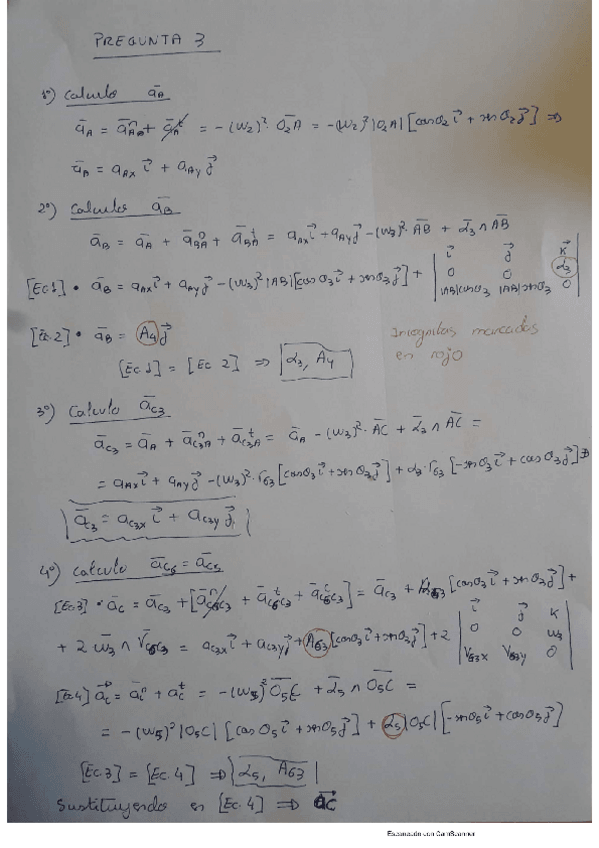 PREGUNTA 3
1º) Calculo a̅A
a̅A = a̅ⁿA + a̅ᵗA = -(ω2)²· O2A = -(ω2)² |O2A| [cosθ2 i⃗ + senθ2 j⃗] ⇒
a̅A = aAx i⃗ + aAy j⃗
2º) Calculo a̅B
a̅B = a̅A + a̅ⁿBA + a̅ᵗBA = aAx i⃗ + aAy j⃗ -(ω3)²· AB + α̅3 ∧ AB
[Ec.1] • a̅B = aAx i⃗ + aAy j⃗ -(ω3)² |AB| [cosθ3 i⃗ + senθ3 j⃗] + | i⃗ j⃗ k⃗ |
| 0 0 α3 |
| |AB|cosθ3 |AB|senθ3 0 |
[Ec.2] • a̅B = A4 j⃗
Incognitas marcadas
en rojo
[Ec.1] = [Ec 2] ⇒ α3, A4
3º) Calculo a̅C3
a̅C3 = a̅A + a̅ⁿC3A + a̅ᵗC3A = a̅A - (ω3)²· AC + α̅3 ∧ AC =
= aAx i⃗ + aAy j⃗ -(ω3)²· r63 [cosθ3 i⃗ + senθ3 j⃗] + α3· r63 [-senθ3 i⃗ + cosθ3 j⃗] ⇒
a̅C3 = aC3x i⃗ + aC3y j⃗
4º) Calculo a̅C6 = a̅C5
[Ec.3] • a̅C = a̅C3 + [a̅ⁿC6C3 + a̅ᵗC6C3 + a̅ᶜC6C3] = a̅C3 + A63 [cosθ3 i⃗ + senθ3 j⃗] +
+ 2 ω̅3 ∧ V̅C6C3 = aC3x i⃗ + aC3y j⃗ + A63 [cosθ3 i⃗ + senθ3 j⃗] + 2 | i⃗ j⃗ k |
| 0 0 ω3 |
| V63x V63y 0 |
[Ec4] a̅C = a̅ⁿC + a̅ᵗC = -(ω5)² O5C + α̅5 ∧ O5C =
= -(ω5)² |O5C| [cosθ5 i⃗ + senθ5 j⃗] + α5 |O5C| [-senθ5 i⃗ + cosθ5 j⃗]
[Ec.3] = [Ec.4] ⇒ α5, A63
Sustituyendo en [Ec.4] ⇒ a̅C
Escaneado con CamScanner